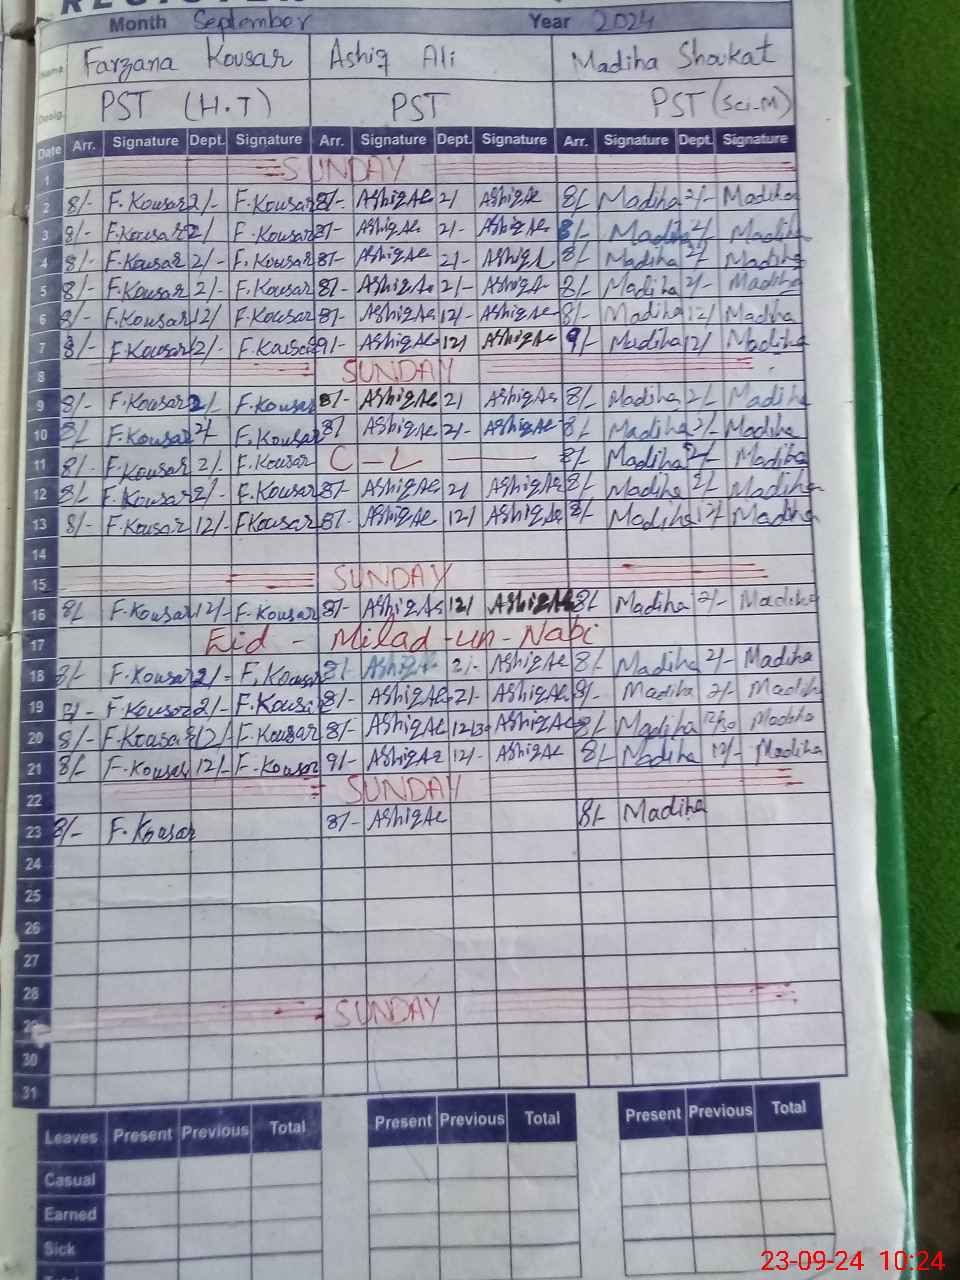 REGISTER
Month September Year 2024
Name Farzana Kousar Ashiq Ali Madiha Shoukat
Desig. PST (H.T) PST PST (Sci-M)
Date Arr. Signature Dept. Signature Arr. Signature Dept. Signature Arr. Signature Dept. Signature
1 SUNDAY
2 8/- F.Kousar 2/- F.Kousar 8/- AshiqAe 2/ AshiqAe 8/ Madiha 2/- Madiha
3 8/- F.Kousar 2/ F.Kousar 8/- AshiqAe 2/- AshiqAe 8/- Madiha 2/ Madiha
4 8/- F.Kousar 2/- F.Kousar 8/- AshiqAe 2/- AshiqA 8/ Madiha 2/ Madiha
5 8/- F.Kousar 2/- F.Kousar 8/- AshiqAe 2/- AshiqA 8/ Madiha 2/- Madiha
6 8/- F.Kousar 12/ F.Kousar 8/- AshiqAe 12/- AshiqAe 8/- Madiha 12/ Madiha
7 8/- F.Kousar 12/- F.Kousar 9/- AshiqAe 12/ AshiqAe 9/- Madiha 12/ Madiha
8 SUNDAY
9 8/- F.Kousar 2/ F.Kousar 8/- AshiqAe 2/ AshiqAe 8/ Madiha 2/ Madiha
10 8/ F.Kousar 2/ F.Kousar 8/ AshiqAe 2/- AshiqAe 8/ Madiha 2/- Madiha
11 8/- F.Kousar 2/- F.Kousar C - L 8/- Madiha 2/- Madiha
12 8/ F.Kousar 2/- F.Kousar 8/- AshiqAe 2/ AshiqAe 8/ Madiha 2/- Madiha
13 8/- F.Kousar 12/- F.Kousar 8/- AshiqAe 12/ AshiqAe 8/- Madiha 12/- Madiha
14
15 SUNDAY
16 8/ F.Kousar 12/- F.Kousar 8/- AshiqAe 12/ AshiqAe 8/ Madiha 2/- Madiha
17 Eid - Milad-un-Nabi
18 8/- F.Kousar 2/- F.Kousar 8/- AshiqAe 2/- AshiqAe 8/- Madiha 2/- Madiha
19 8/- F.Kousar 2/- F.Kousar 8/- AshiqAe 2/- AshiqAe 8/- Madiha 2/- Madiha
20 8/- F.Kousar 12/ F.Kousar 8/- AshiqAe 12/30 AshiqAe 8/- Madiha 12/30 Madiha
21 8/- F.Kousar 12/- F.Kousar 9/- AshiqAe 12/- AshiqAe 8/- Madiha 12/- Madiha
22 SUNDAY
23 8/- F.Kousar 8/- AshiqAe 8/- Madiha
24
25
26
27
28
29 SUNDAY
30
31
Leaves Present Previous Total Present Previous Total Present Previous Total
Casual
Earned
Sick
23-09-24 10:24